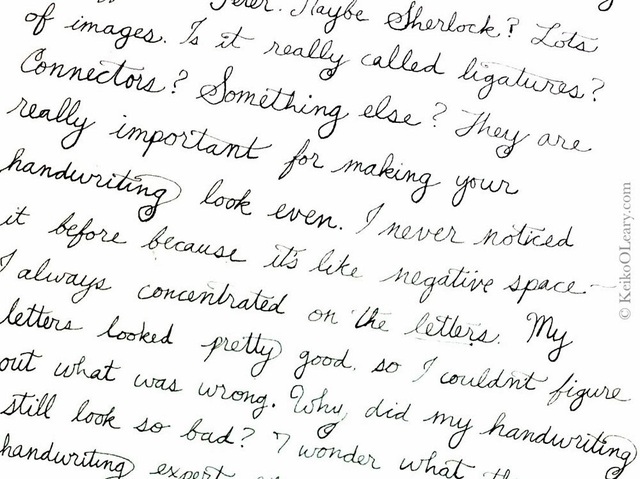 Peter. Maybe Sherlock? Lots
of images. Is it really called ligatures?
Connectors? Something else? They are
really important for making your
handwriting look even. I never noticed
it before because it's like negative space—
I always concentrated on the letters. My
letters looked pretty good, so I couldn't figure
out what was wrong. Why did my handwriting
still look so bad? I wonder what
handwriting expert
© KeikoOLeary.com